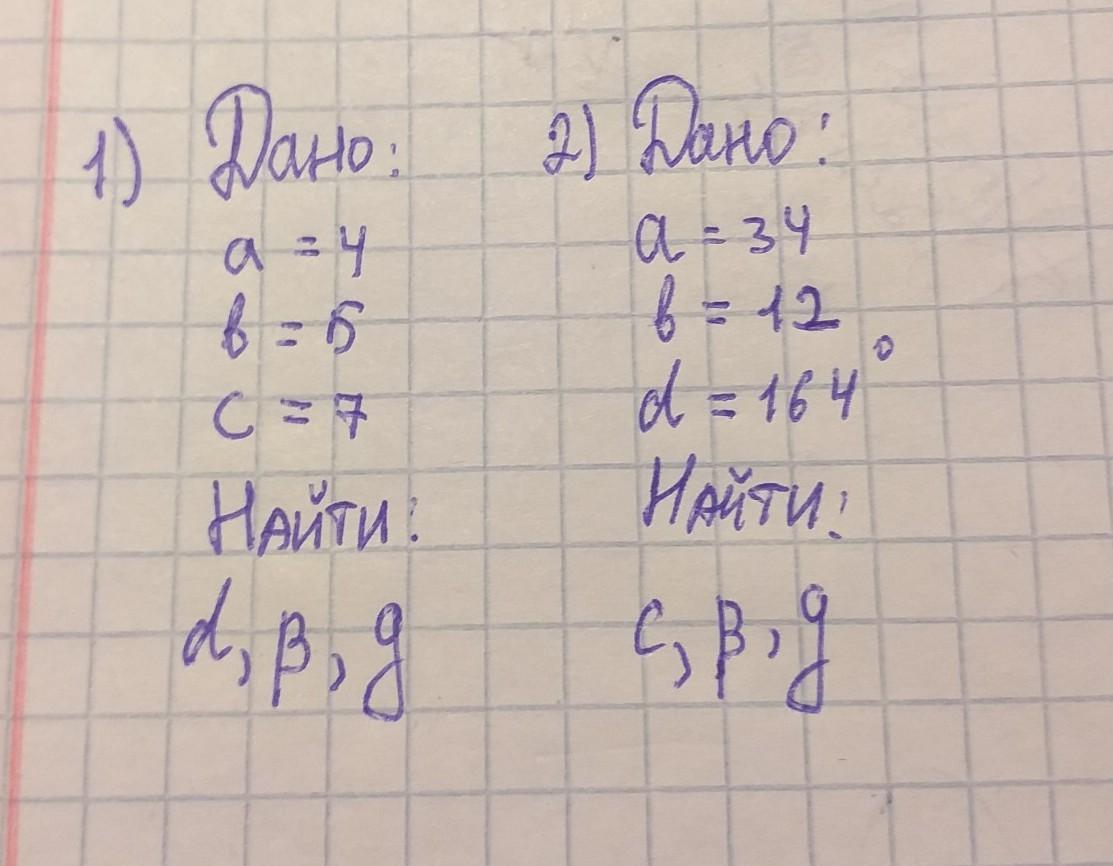 1) Дано:
a = 4
b = 5
c = 7
Найти:
α, β, g
2) Дано:
a = 34
b = 12
α = 164°
Найти:
c, β, g